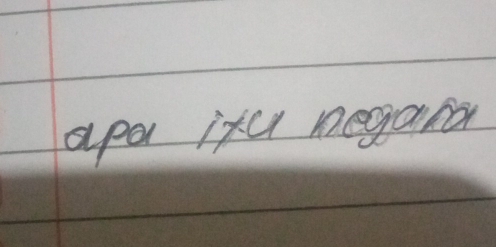 apa itu negara